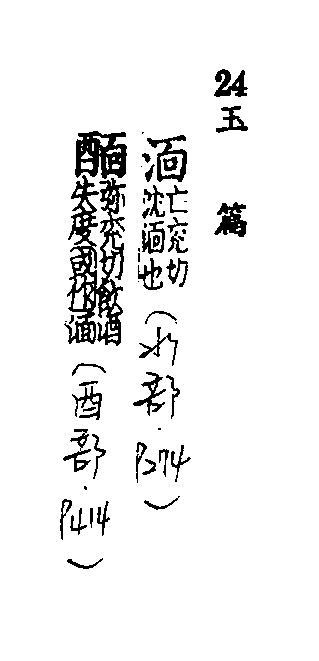 24玉篇
湎亡兖切沈湎也(水部.P274)
醽弥兖切飲酒失度或作湎(酉部.P414)